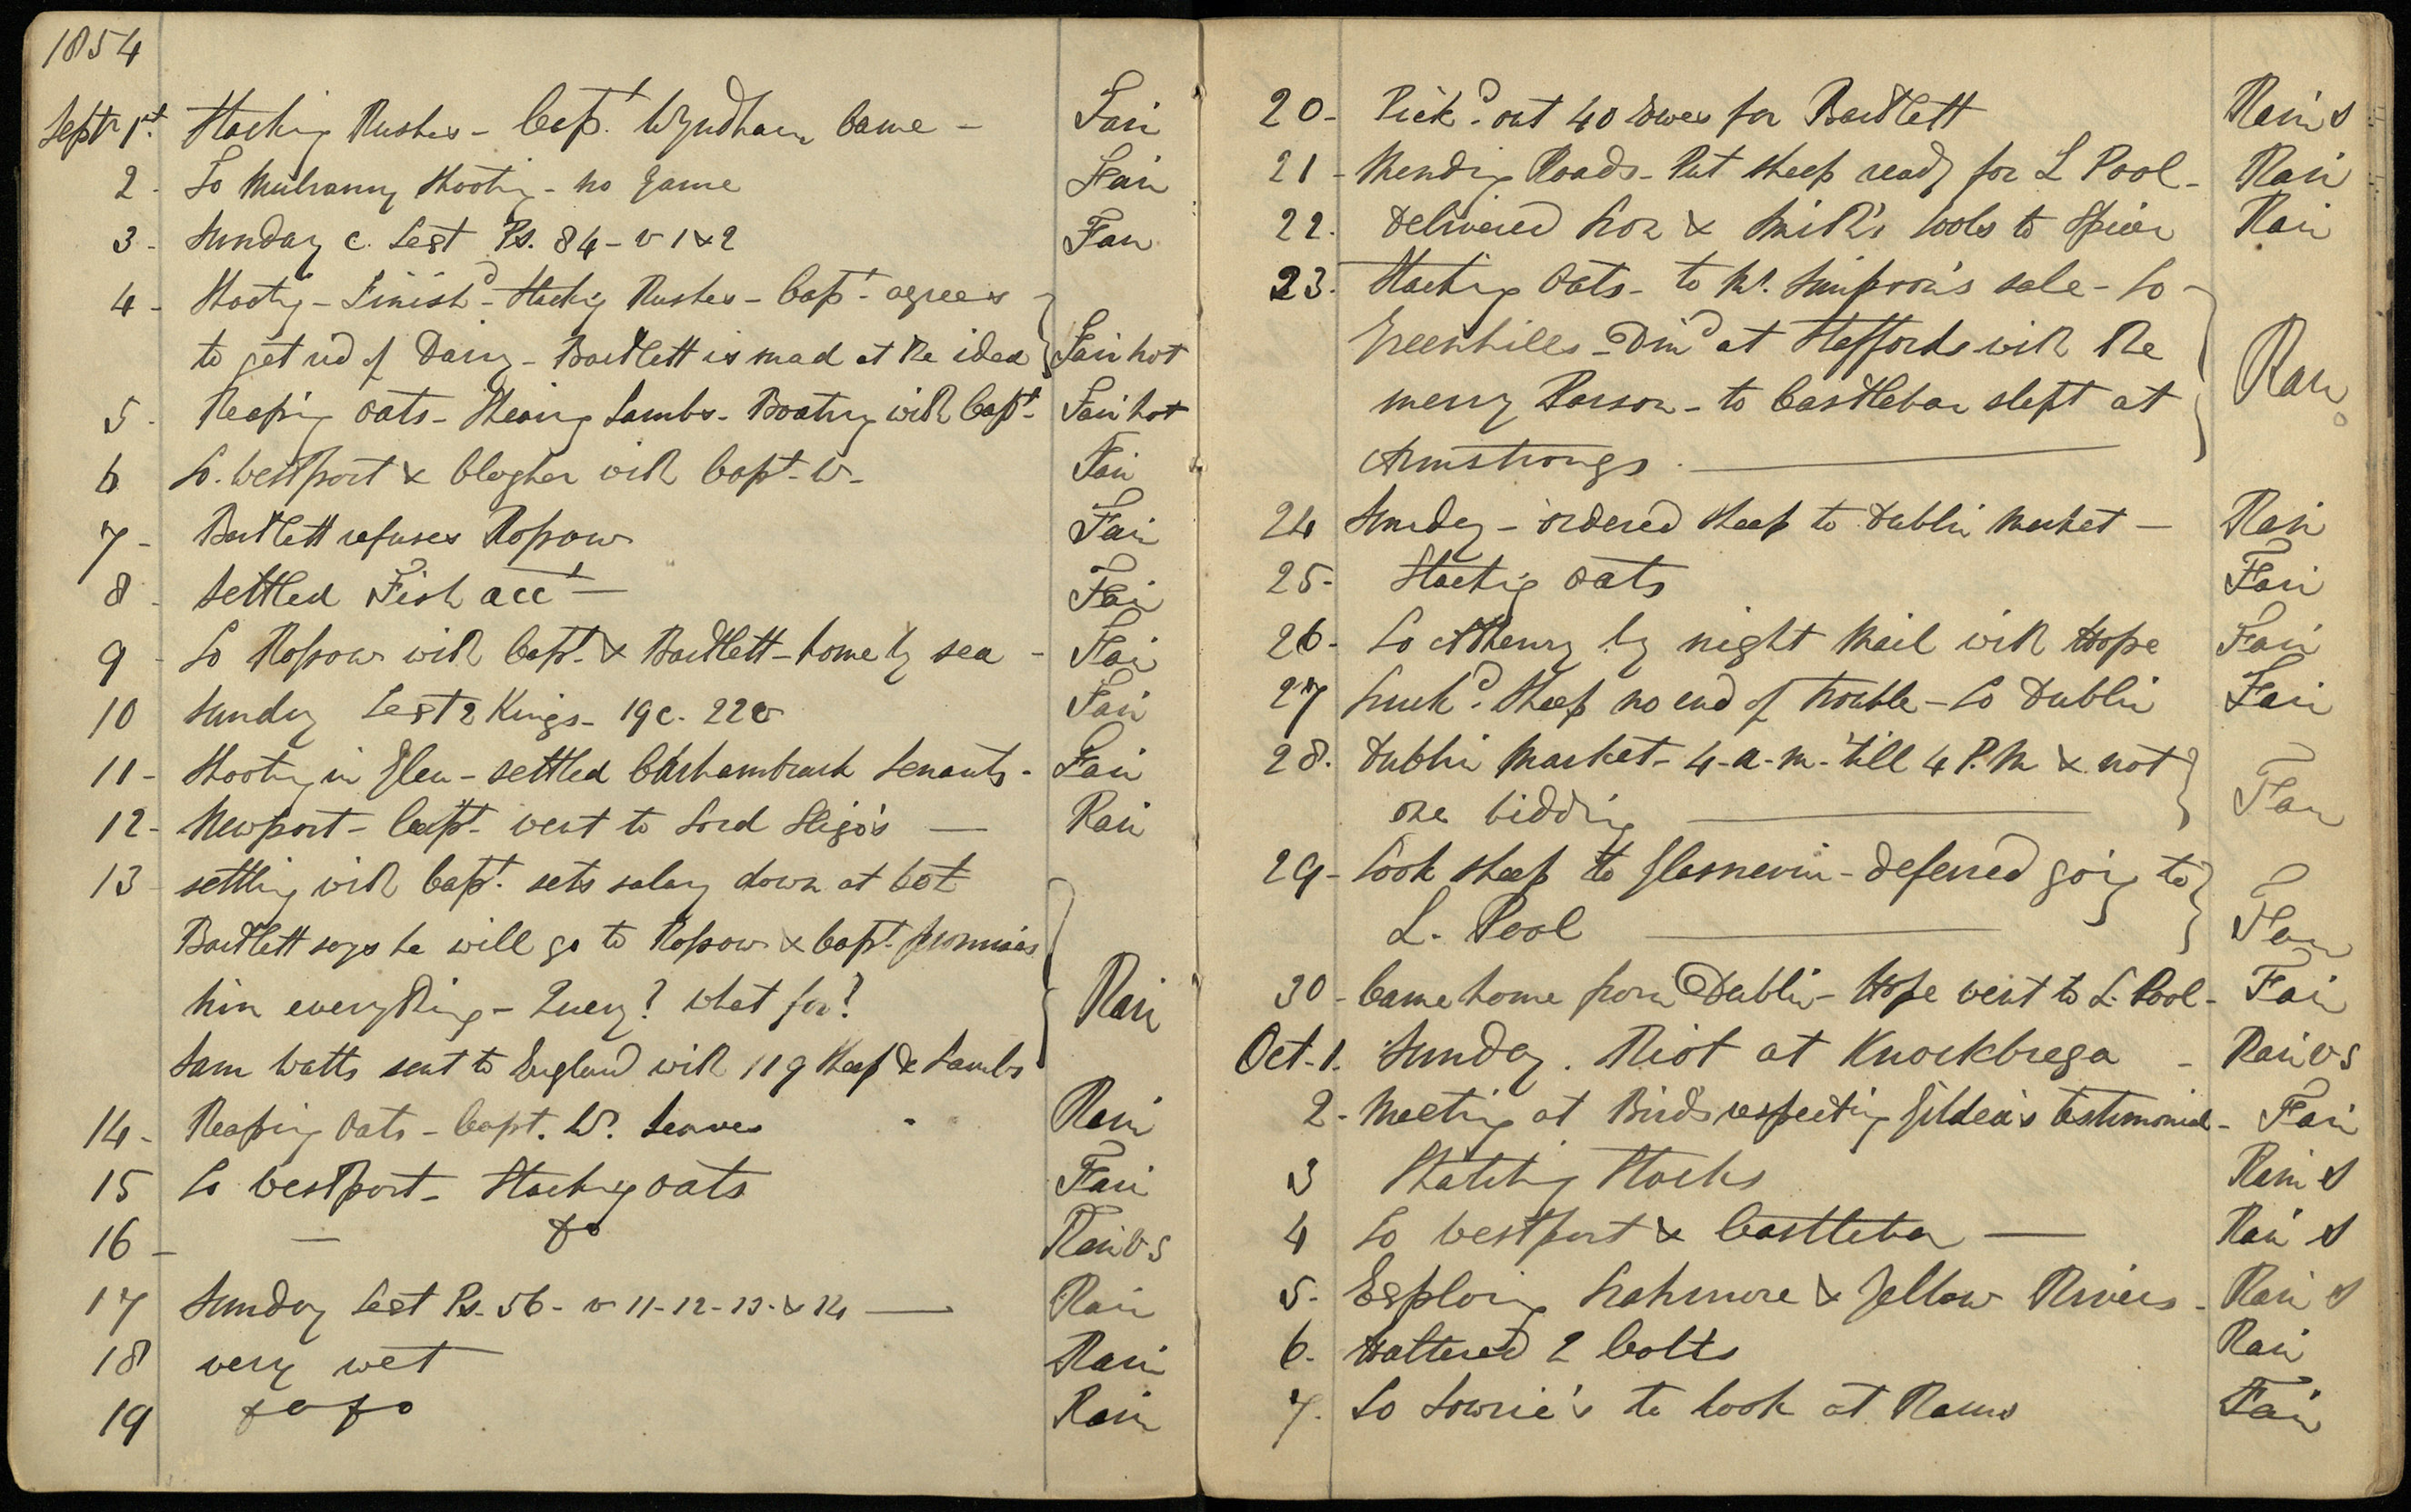 1854
Septr 1st. Stacking Rushes - Capt. Wyndham Came - Fair
2 - To Mulranny Shooting - no game Fair
3 - Sunday C. Lest Ps. 84 - v 1 & 2 Fair
4 - Shooting - Finishd - Stacking Rushes - Capt. agrees
to get rid of Dairy - Bartlett is mad at the idea Fair hot
5 - Reaping Oats - Shearing Lambs - Boating with Capt - Fair hot
6 To Westport & Clogher with Capt - W - Fair
7 - Bartlett refuses Rossow Fair
8 - Settled Fish acct - Fair
9 - To Rossow with Capt. & Bartlett - home by sea - Fair
10 Sunday Lest 2 Kings - 19 c. 22 v Fair
11 - Shooting in Glen - settled tenants - Fair
12 - Newport - Capt - went to Lord Sligo's — Rain
13 - settling with Capt. sets salary down at
Bartlett says he will go to Rossow & Capt. promises
him everything - Query? What for? Rain
Sam Watts sent to England with 119 Sheep & Lambs
14 - Reaping Oats - Capt. W. Leaves - Rain
15 To Westport - Stacking oats Fair
16 - — do Rain vs
17 Sunday Lest Ps. 56 - v 11 - 12 - 13 - & 14 — Rain
18 very wet Rain
19 do do Rain
20 - Pickd. out 40 Ewes for Bartlett Rain S
21 - Mending Roads - Put sheep ready for L Pool - Rain
22. Delivered Iron & Smith's tools to Spier Rain
23. Stacking Oats - to Mr. Simpson's sale - To
Greenhills - Dind at Staffords with the
merry Parson - to Castlebar slept at Rain
Armstrongs. —
24 Sunday - ordered Sheep to Dublin Market — Rain
25 - Stacking oats Fair
26 - To Athenry by night Mail with Hope Fair
27 Truckd. Sheep no end of trouble - To Dublin Fair
28. Dublin Market - 4 - a - m - 'till 4 P. M & not
one bidding — Fair
29 - Took sheep to Glasnevin - deferred going to
L. Pool — Fair
30 - Came home from Dublin - Hope went to L. Pool - Fair
Oct. 1. Sunday. Riot at Knockbrega - Rain vs
2 - Meeting at Birds respecting Gildea's testimonial - Fair
3 Thatching Stacks Rain S
4 To Westport & Castlebar — Rain S
5 - Exploring Srahmore & Yellow Rivers - Rain S
6. Haltered 2 Colts Rain
7. To Lowrie's to look at Rams Fair